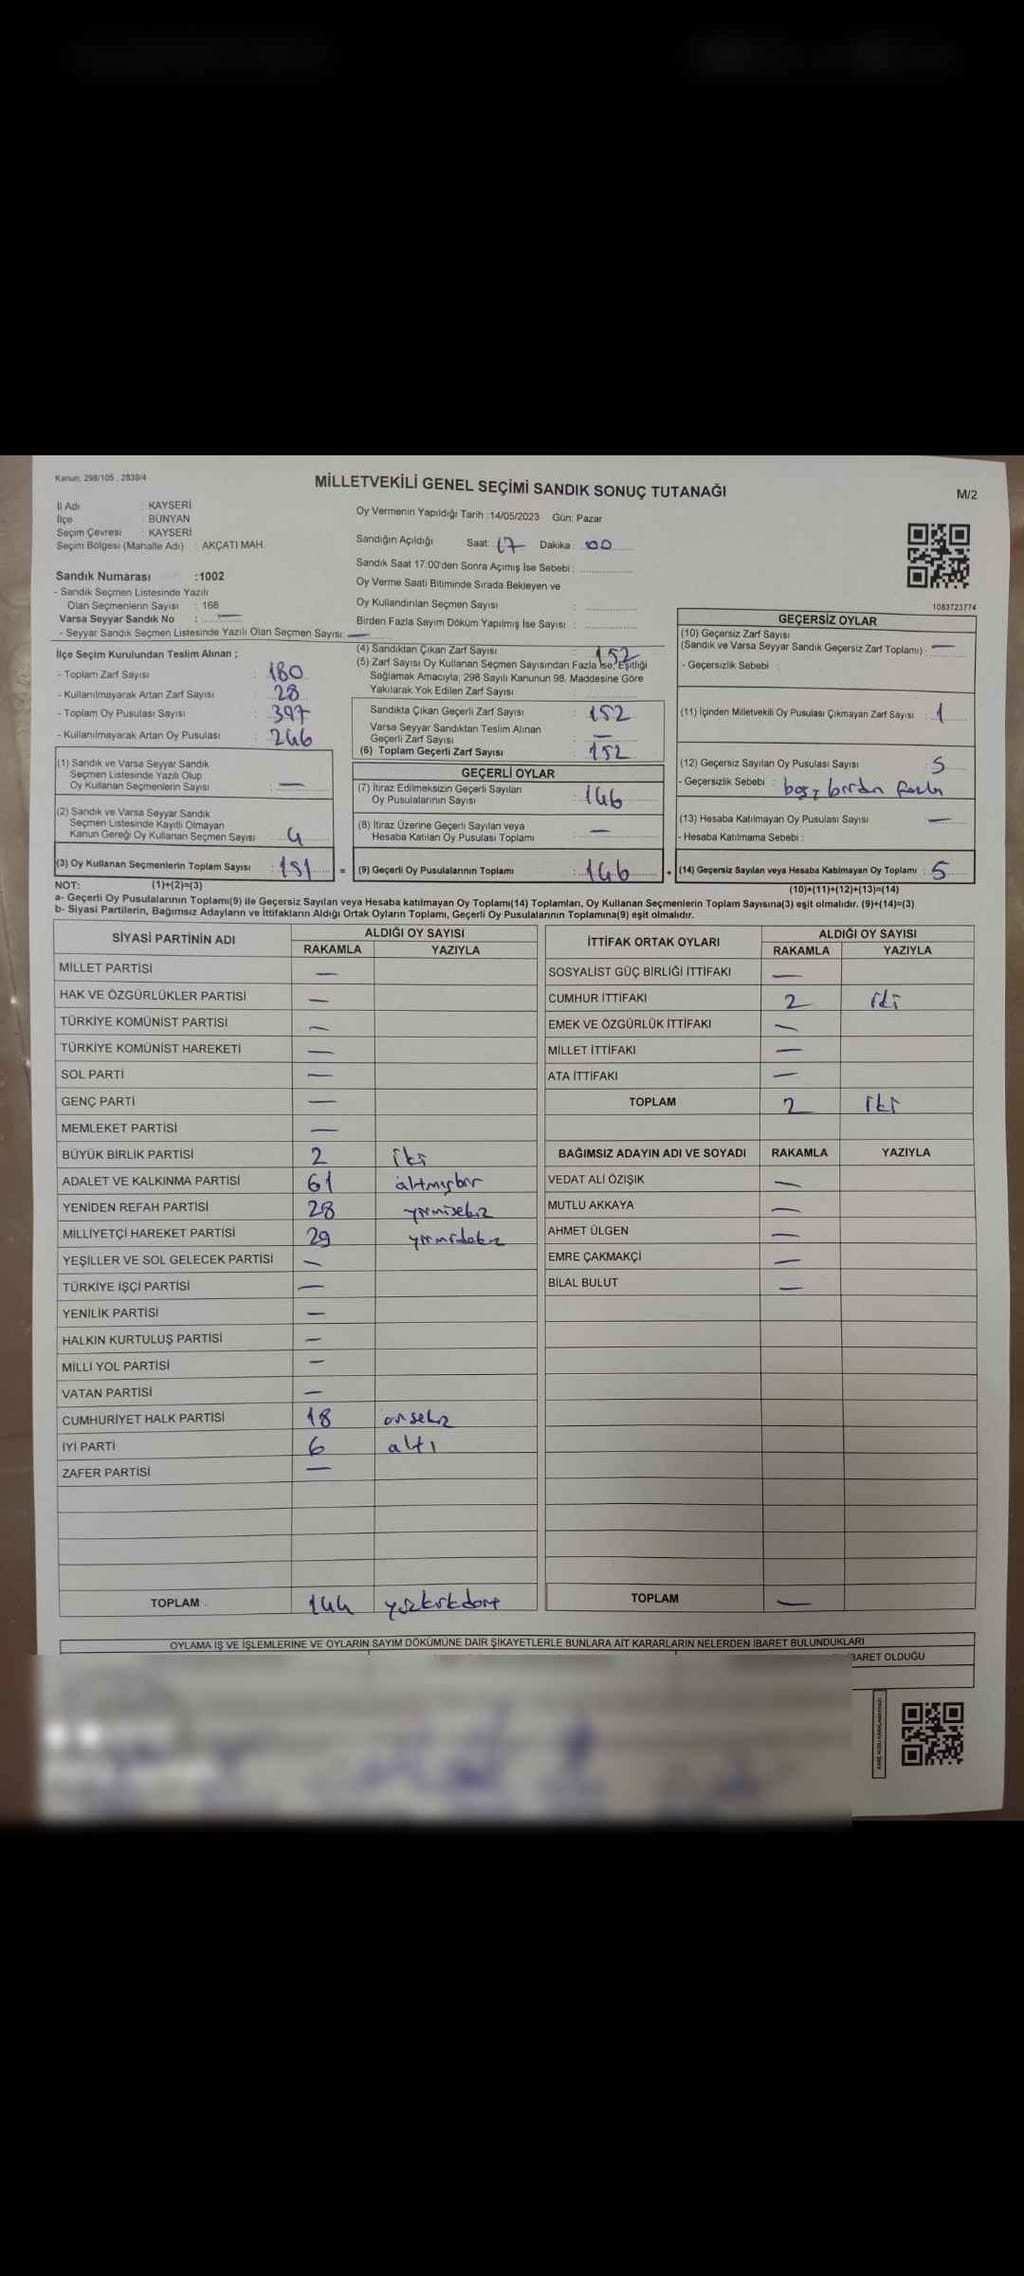 Kanun: 298/105 , 2839/4
MİLLETVEKİLİ GENEL SEÇİMİ SANDIK SONUÇ TUTANAĞI
M/2
İl Adı : KAYSERİ
İlçe : BÜNYAN
Seçim Çevresi : KAYSERİ
Seçim Bölgesi (Mahalle Adı) : AKÇATI MAH.
Oy Vermenin Yapıldığı Tarih :14/05/2023 Gün: Pazar
Sandığın Açıldığı Saat: 17 Dakika: 00
Sandık Saat 17:00'den Sonra Açımış İse Sebebi :
Oy Verme Saati Bitiminde Sırada Bekleyen ve
Oy Kullandırılan Seçmen Sayısı :
Birden Fazla Sayım Döküm Yapılmış İse Sayısı :
Sandık Numarası :1002
- Sandık Seçmen Listesinde Yazılı
Olan Seçmenlerin Sayısı : 168
Varsa Seyyar Sandık No : —
- Seyyar Sandık Seçmen Listesinde Yazılı Olan Seçmen Sayısı : —
1083723774
İlçe Seçim Kurulundan Teslim Alınan ;
- Toplam Zarf Sayısı : 180
- Kullanılmayarak Artan Zarf Sayısı : 28
- Toplam Oy Pusulası Sayısı : 397
- Kullanılmayarak Artan Oy Pusulası : 246
(1) Sandık ve Varsa Seyyar Sandık
Seçmen Listesinde Yazılı Olup
Oy Kullanan Seçmenlerin Sayısı : —
(2) Sandık ve Varsa Seyyar Sandık
Seçmen Listesinde Kayıtlı Olmayan
Kanun Gereği Oy Kullanan Seçmen Sayısı : 4
(3) Oy Kullanan Seçmenlerin Toplam Sayısı : 151 =
(4) Sandıktan Çıkan Zarf Sayısı : 152
(5) Zarf Sayısı Oy Kullanan Seçmen Sayısından Fazla İse, Eşitliği
Sağlamak Amacıyla, 298 Sayılı Kanunun 98. Maddesine Göre
Yakılarak Yok Edilen Zarf Sayısı :
Sandıkta Çıkan Geçerli Zarf Sayısı : 152
Varsa Seyyar Sandıktan Teslim Alınan
Geçerli Zarf Sayısı : —
(6) Toplam Geçerli Zarf Sayısı : 152
GEÇERLİ OYLAR
(7) İtiraz Edilmeksizin Geçerli Sayılan
Oy Pusulalarının Sayısı : 146
(8) İtiraz Üzerine Geçerli Sayılan veya
Hesaba Katılan Oy Pusulası Toplamı : —
(9) Geçerli Oy Pusulalarının Toplamı : 146 +
GEÇERSİZ OYLAR
(10) Geçersiz Zarf Sayısı
(Sandık ve Varsa Seyyar Sandık Geçersiz Zarf Toplamı) : —
- Geçersizlik Sebebi :
(11) İçinden Milletvekili Oy Pusulası Çıkmayan Zarf Sayısı : 1
(12) Geçersiz Sayılan Oy Pusulası Sayısı : 5
- Geçersizlik Sebebi : boş, birden fazla
(13) Hesaba Katılmayan Oy Pusulası Sayısı : —
- Hesaba Katılmama Sebebi :
(14) Geçersiz Sayılan veya Hesaba Katılmayan Oy Toplamı : 5
NOT: (1)+(2)=(3)
(10)+(11)+(12)+(13)=(14)
a- Geçerli Oy Pusulalarının Toplamı(9) ile Geçersiz Sayılan veya Hesaba katılmayan Oy Toplamı(14) Toplamları, Oy Kullanan Seçmenlerin Toplam Sayısına(3) eşit olmalıdır. (9)+(14)=(3)
b- Siyasi Partilerin, Bağımsız Adayların ve İttifakların Aldığı Ortak Oyların Toplamı, Geçerli Oy Pusulalarının Toplamına(9) eşit olmalıdır.
SİYASİ PARTİNİN ADI ALDIĞI OY SAYISI
RAKAMLA YAZIYLA
MİLLET PARTİSİ —
HAK VE ÖZGÜRLÜKLER PARTİSİ —
TÜRKİYE KOMÜNİST PARTİSİ —
TÜRKİYE KOMÜNİST HAREKETİ —
SOL PARTİ —
GENÇ PARTİ —
MEMLEKET PARTİSİ —
BÜYÜK BİRLİK PARTİSİ 2 iki
ADALET VE KALKINMA PARTİSİ 61 altmışbir
YENİDEN REFAH PARTİSİ 28 yirmisekiz
MİLLİYETÇİ HAREKET PARTİSİ 29 yirmidokuz
YEŞİLLER VE SOL GELECEK PARTİSİ —
TÜRKİYE İŞÇİ PARTİSİ —
YENİLİK PARTİSİ —
HALKIN KURTULUŞ PARTİSİ —
MİLLİ YOL PARTİSİ —
VATAN PARTİSİ —
CUMHURİYET HALK PARTİSİ 18 onsekiz
İYİ PARTİ 6 altı
ZAFER PARTİSİ —
TOPLAM 144 yüzkırkdört
İTTİFAK ORTAK OYLARI ALDIĞI OY SAYISI
RAKAMLA YAZIYLA
SOSYALİST GÜÇ BİRLİĞİ İTTİFAKI —
CUMHUR İTTİFAKI 2 iki
EMEK VE ÖZGÜRLÜK İTTİFAKI —
MİLLET İTTİFAKI —
ATA İTTİFAKI —
TOPLAM 2 iki
BAĞIMSIZ ADAYIN ADI VE SOYADI RAKAMLA YAZIYLA
VEDAT ALİ ÖZIŞIK —
MUTLU AKKAYA —
AHMET ÜLGEN —
EMRE ÇAKMAKÇİ —
BİLAL BULUT —
TOPLAM —
OYLAMA İŞ VE İŞLEMLERİNE VE OYLARIN SAYIM DÖKÜMÜNE DAİR ŞİKAYETLERLE BUNLARA AİT KARARLARIN NELERDEN İBARET BULUNDUKLARI
BARET OLDUĞU